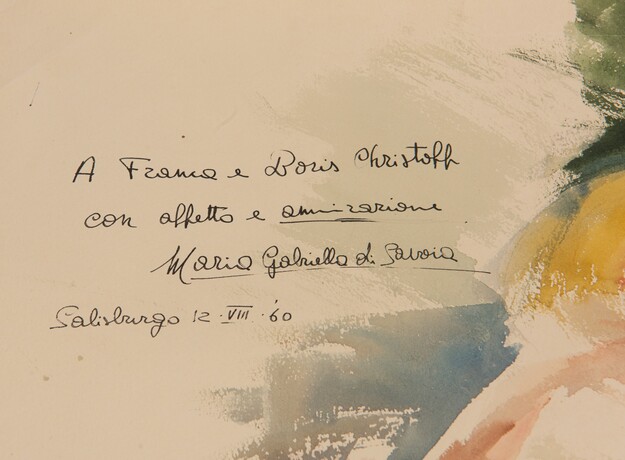 A Franca e Boris Christoff
con affetto e ammirazione
Maria Gabriella di Savoia
Salisburgo 12 · VIII · '60